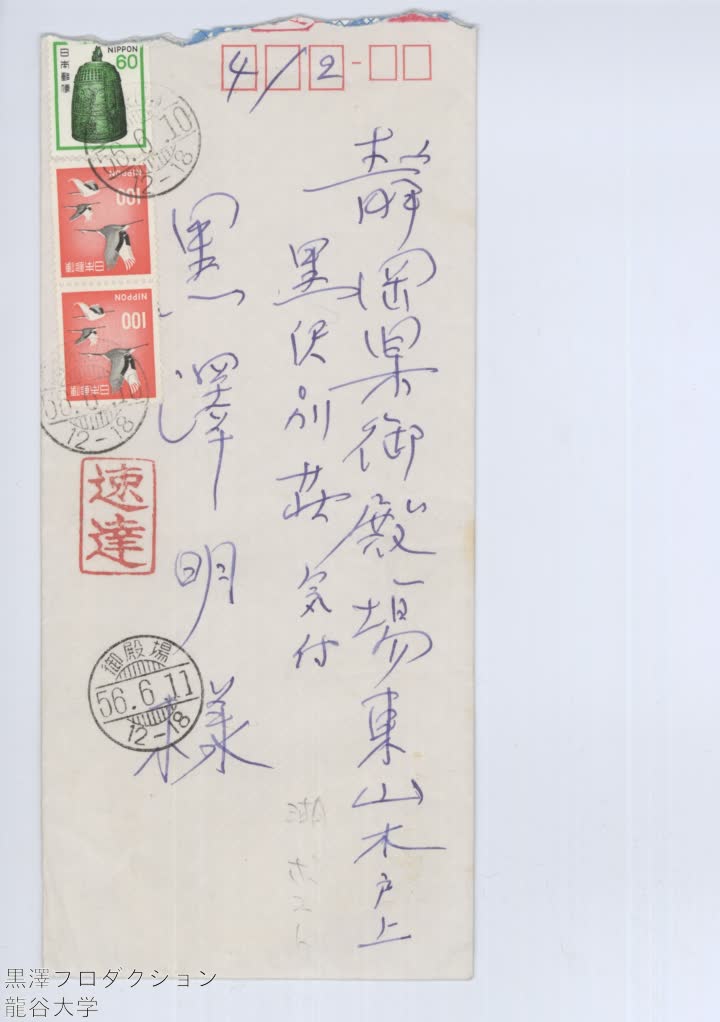 412
静岡県御殿場東山木戸上
黒沢別荘気付
黒澤明様
日本郵便
NIPPON
60
NIPPON
100
日本郵便
NIPPON
100
日本郵便
56.6.10
12-18
12-18
速達
御殿場
56.6.11
12-18
黒澤フロダクション
龍谷大学